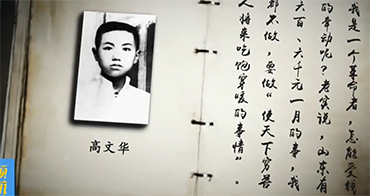 我是一个革命者，怎能受钱
的牵动呢？老实说，山东有
六百、六千元一月的事，我
都不做，要做“使天下穷苦
人将来吃饱穿暖的事情”。
高文华
领航